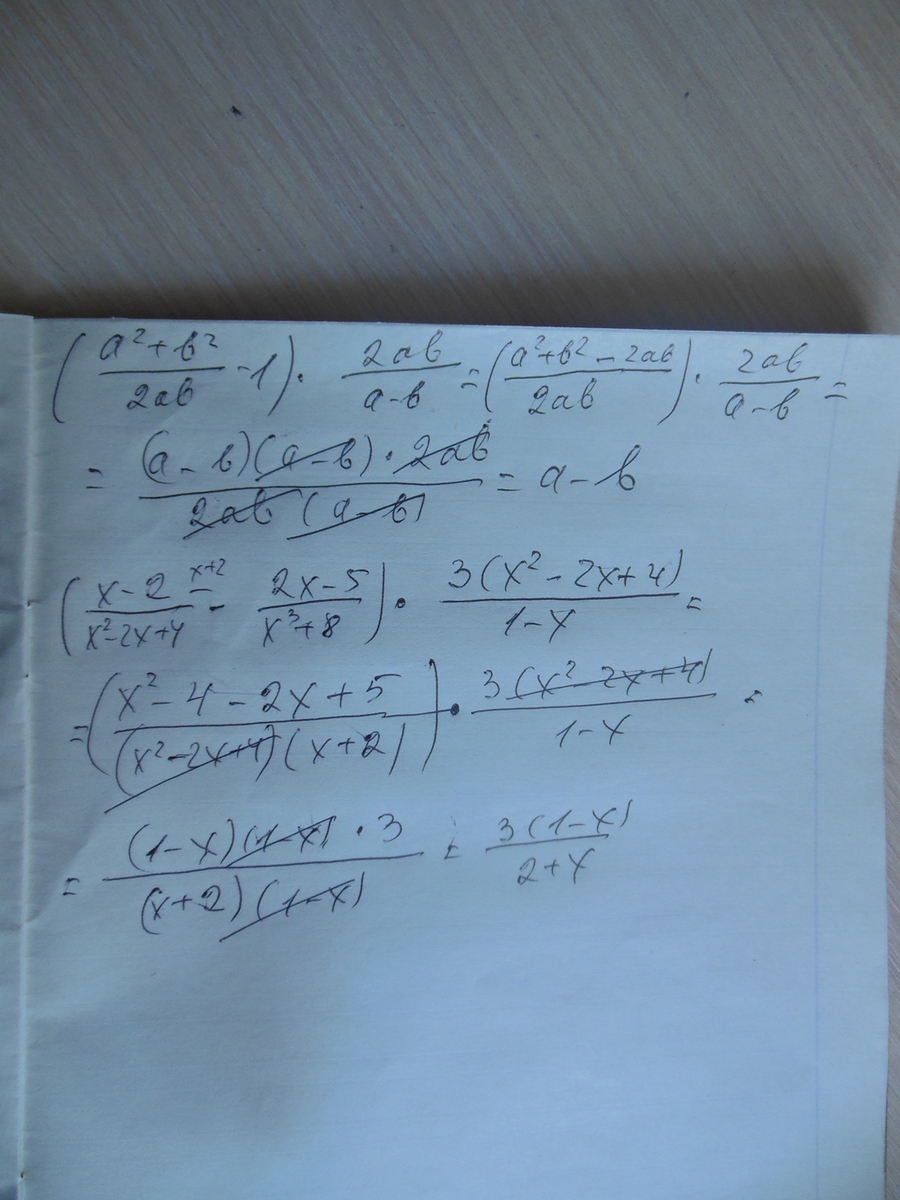 (a²+b²/2ab - 1) · 2ab/a-b = (a²+b²-2ab/2ab) · 2ab/a-b =
= (a-b)(a-b)·2ab/2ab(a-b) = a-b
(x-2/x²-2x+4 x+2 - 2x-5/x³+8) · 3(x²-2x+4)/1-x =
= (x²-4-2x+5/(x²-2x+4)(x+2)) · 3(x²-2x+4)/1-x =
= (1-x)(1-x)·3/(x+2)(1-x) = 3(1-x)/2+x